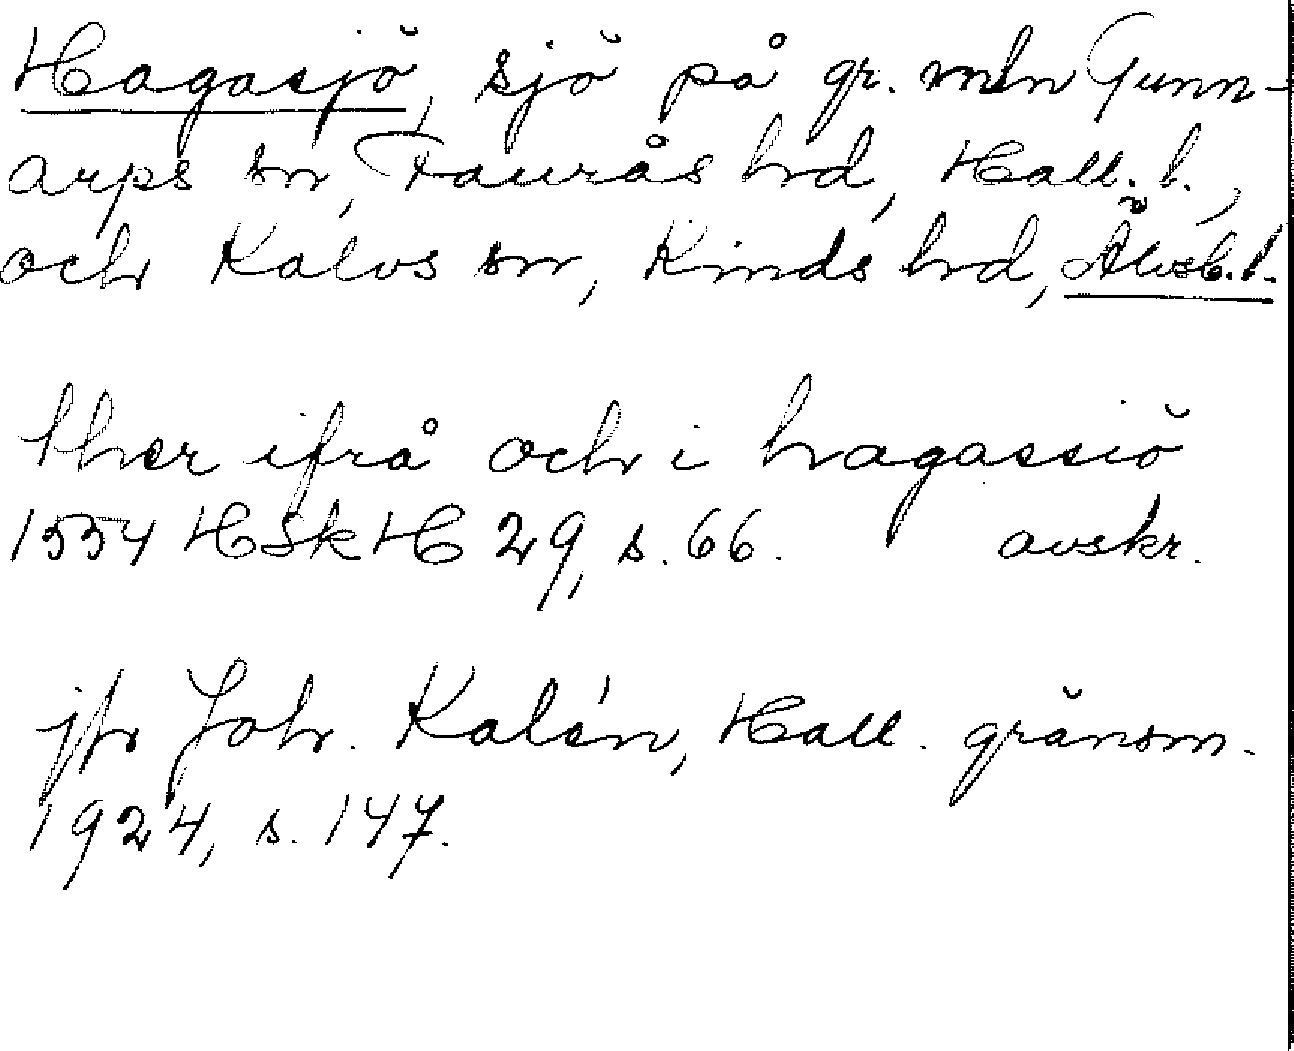 Hagasjö, sjö på gr. mln Gunn-
arps sn, Faurås hd, Hall. l.,
och Kalvs sn, Kinds hd, Älvsb. l.
ther ifrå och i hagassiö
1554 HSkH 29, s. 66. avskr.
jfr Joh. Kalén, Hall. gränsm.
1924, s. 147.